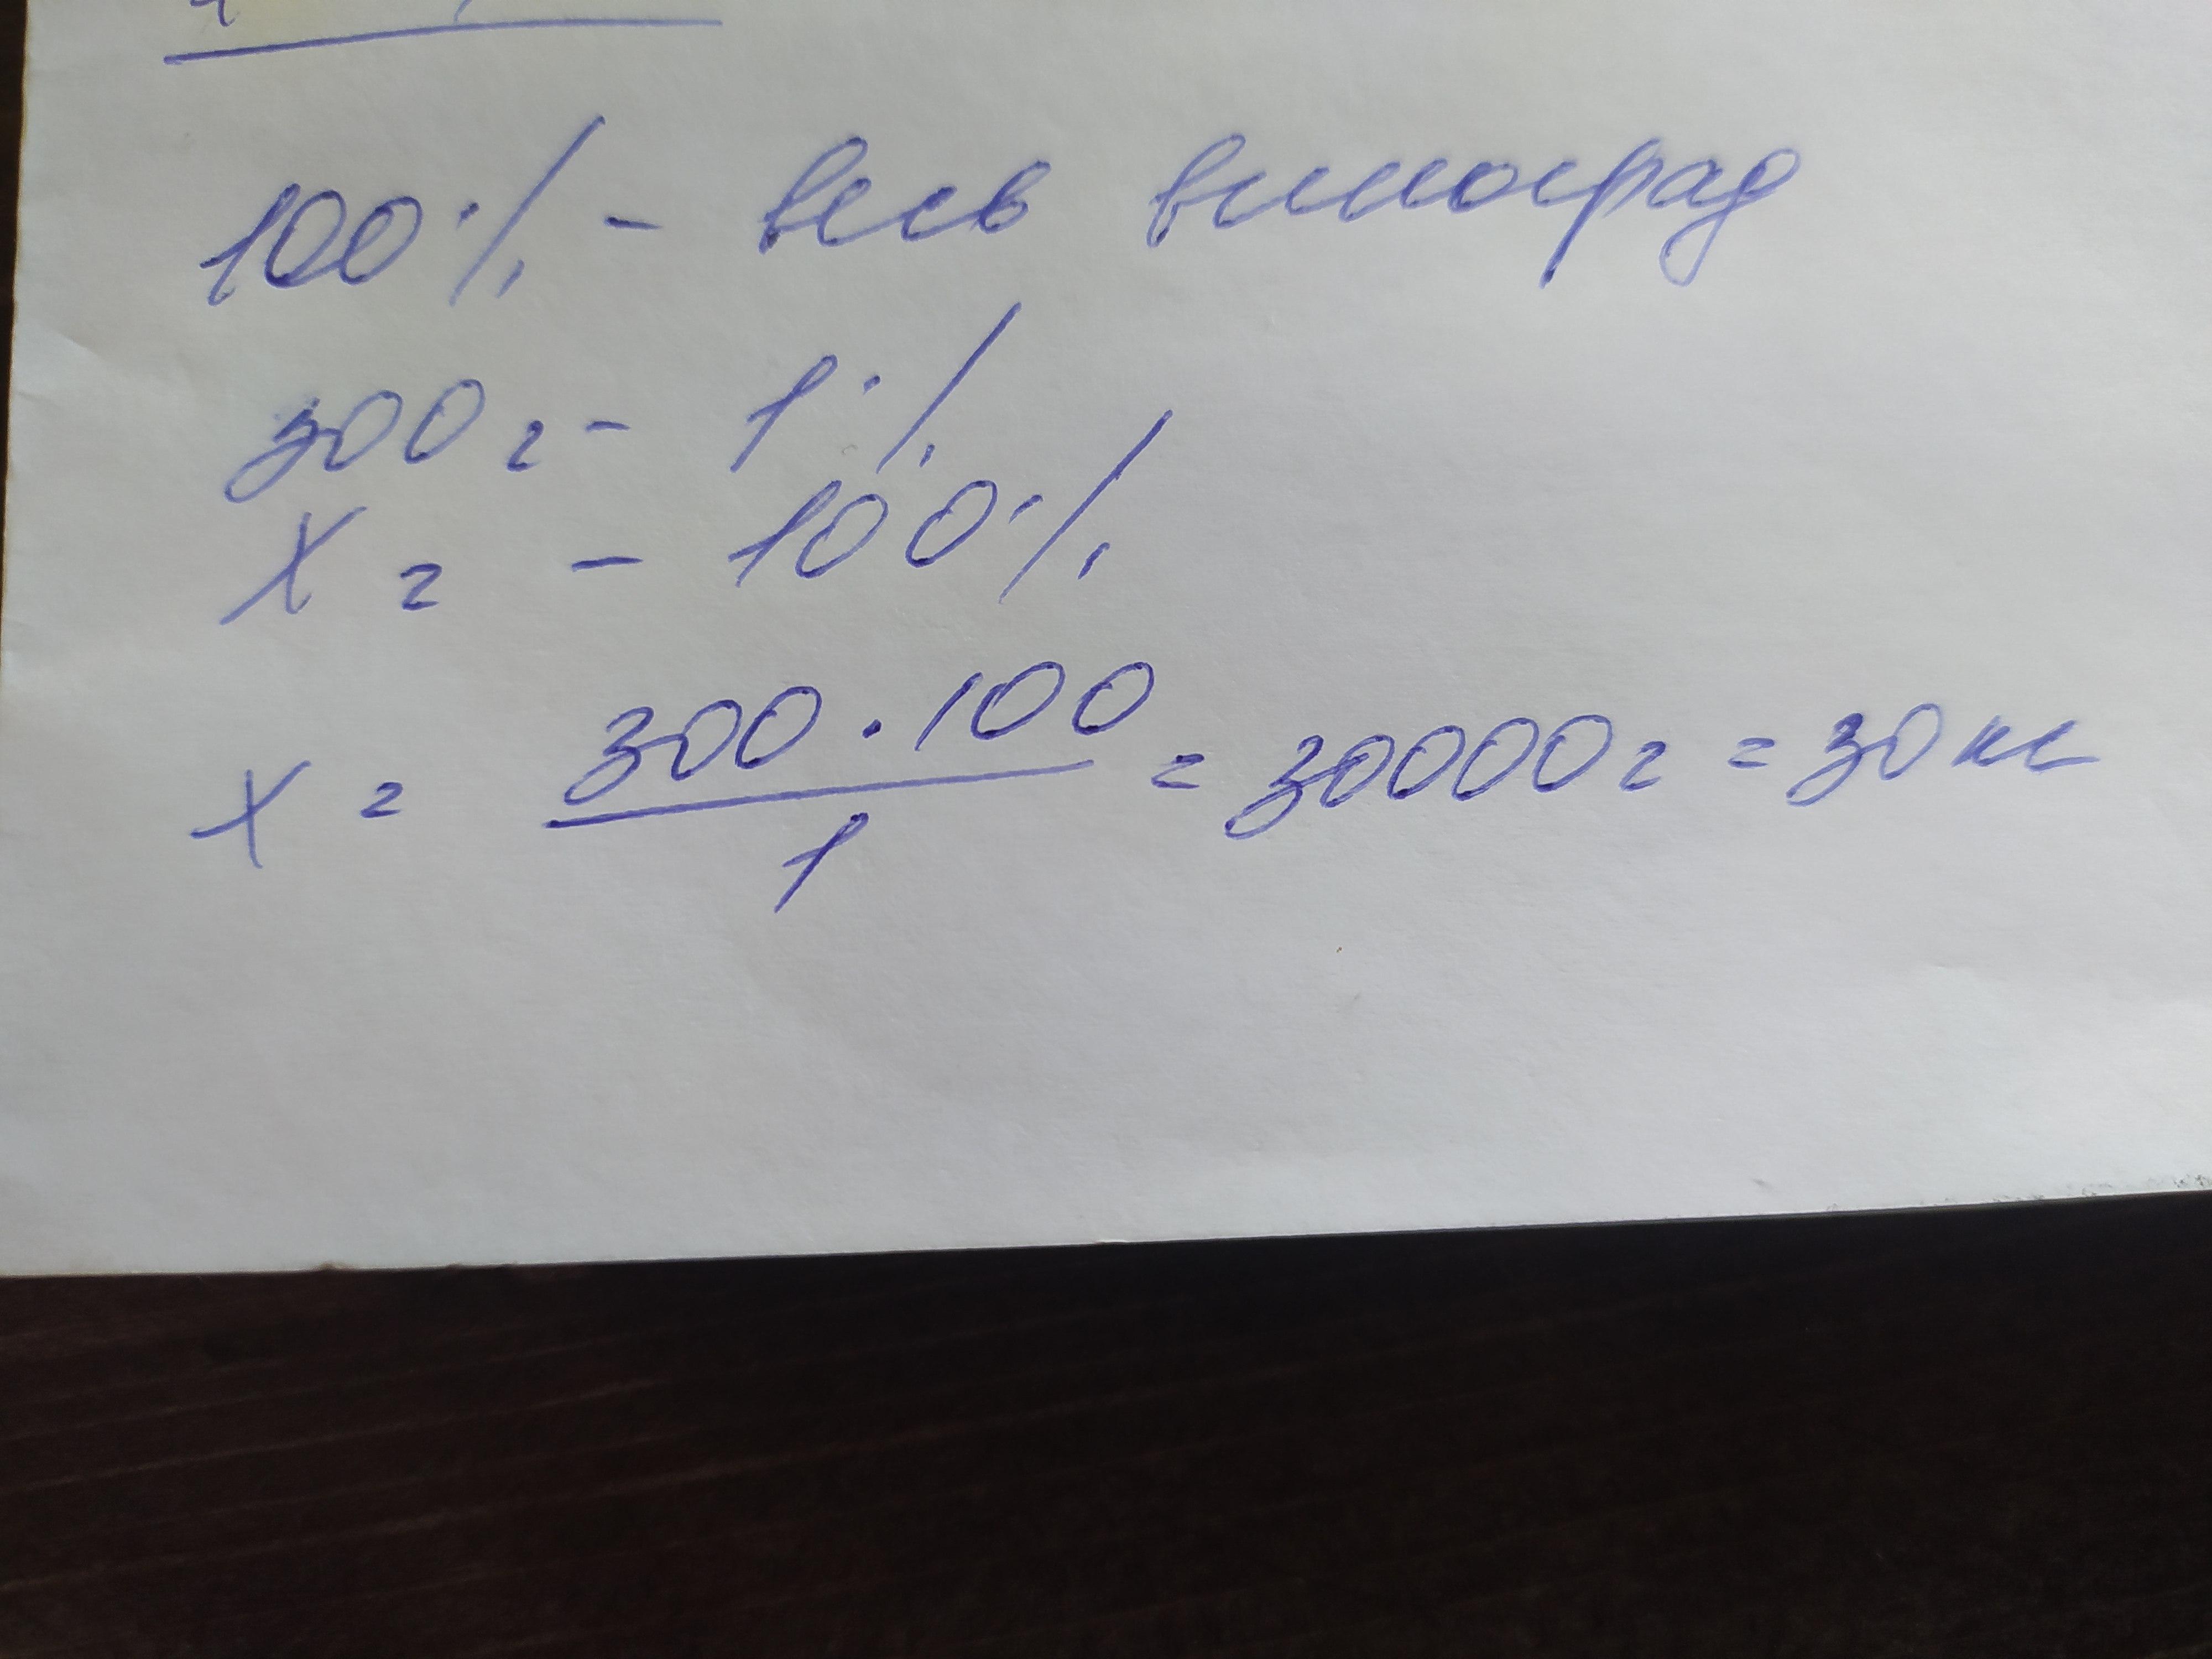 100% - весь виноград
300 г - 1%
X г - 100%
x = 300 · 100 / 1 = 30000 г = 30 кг